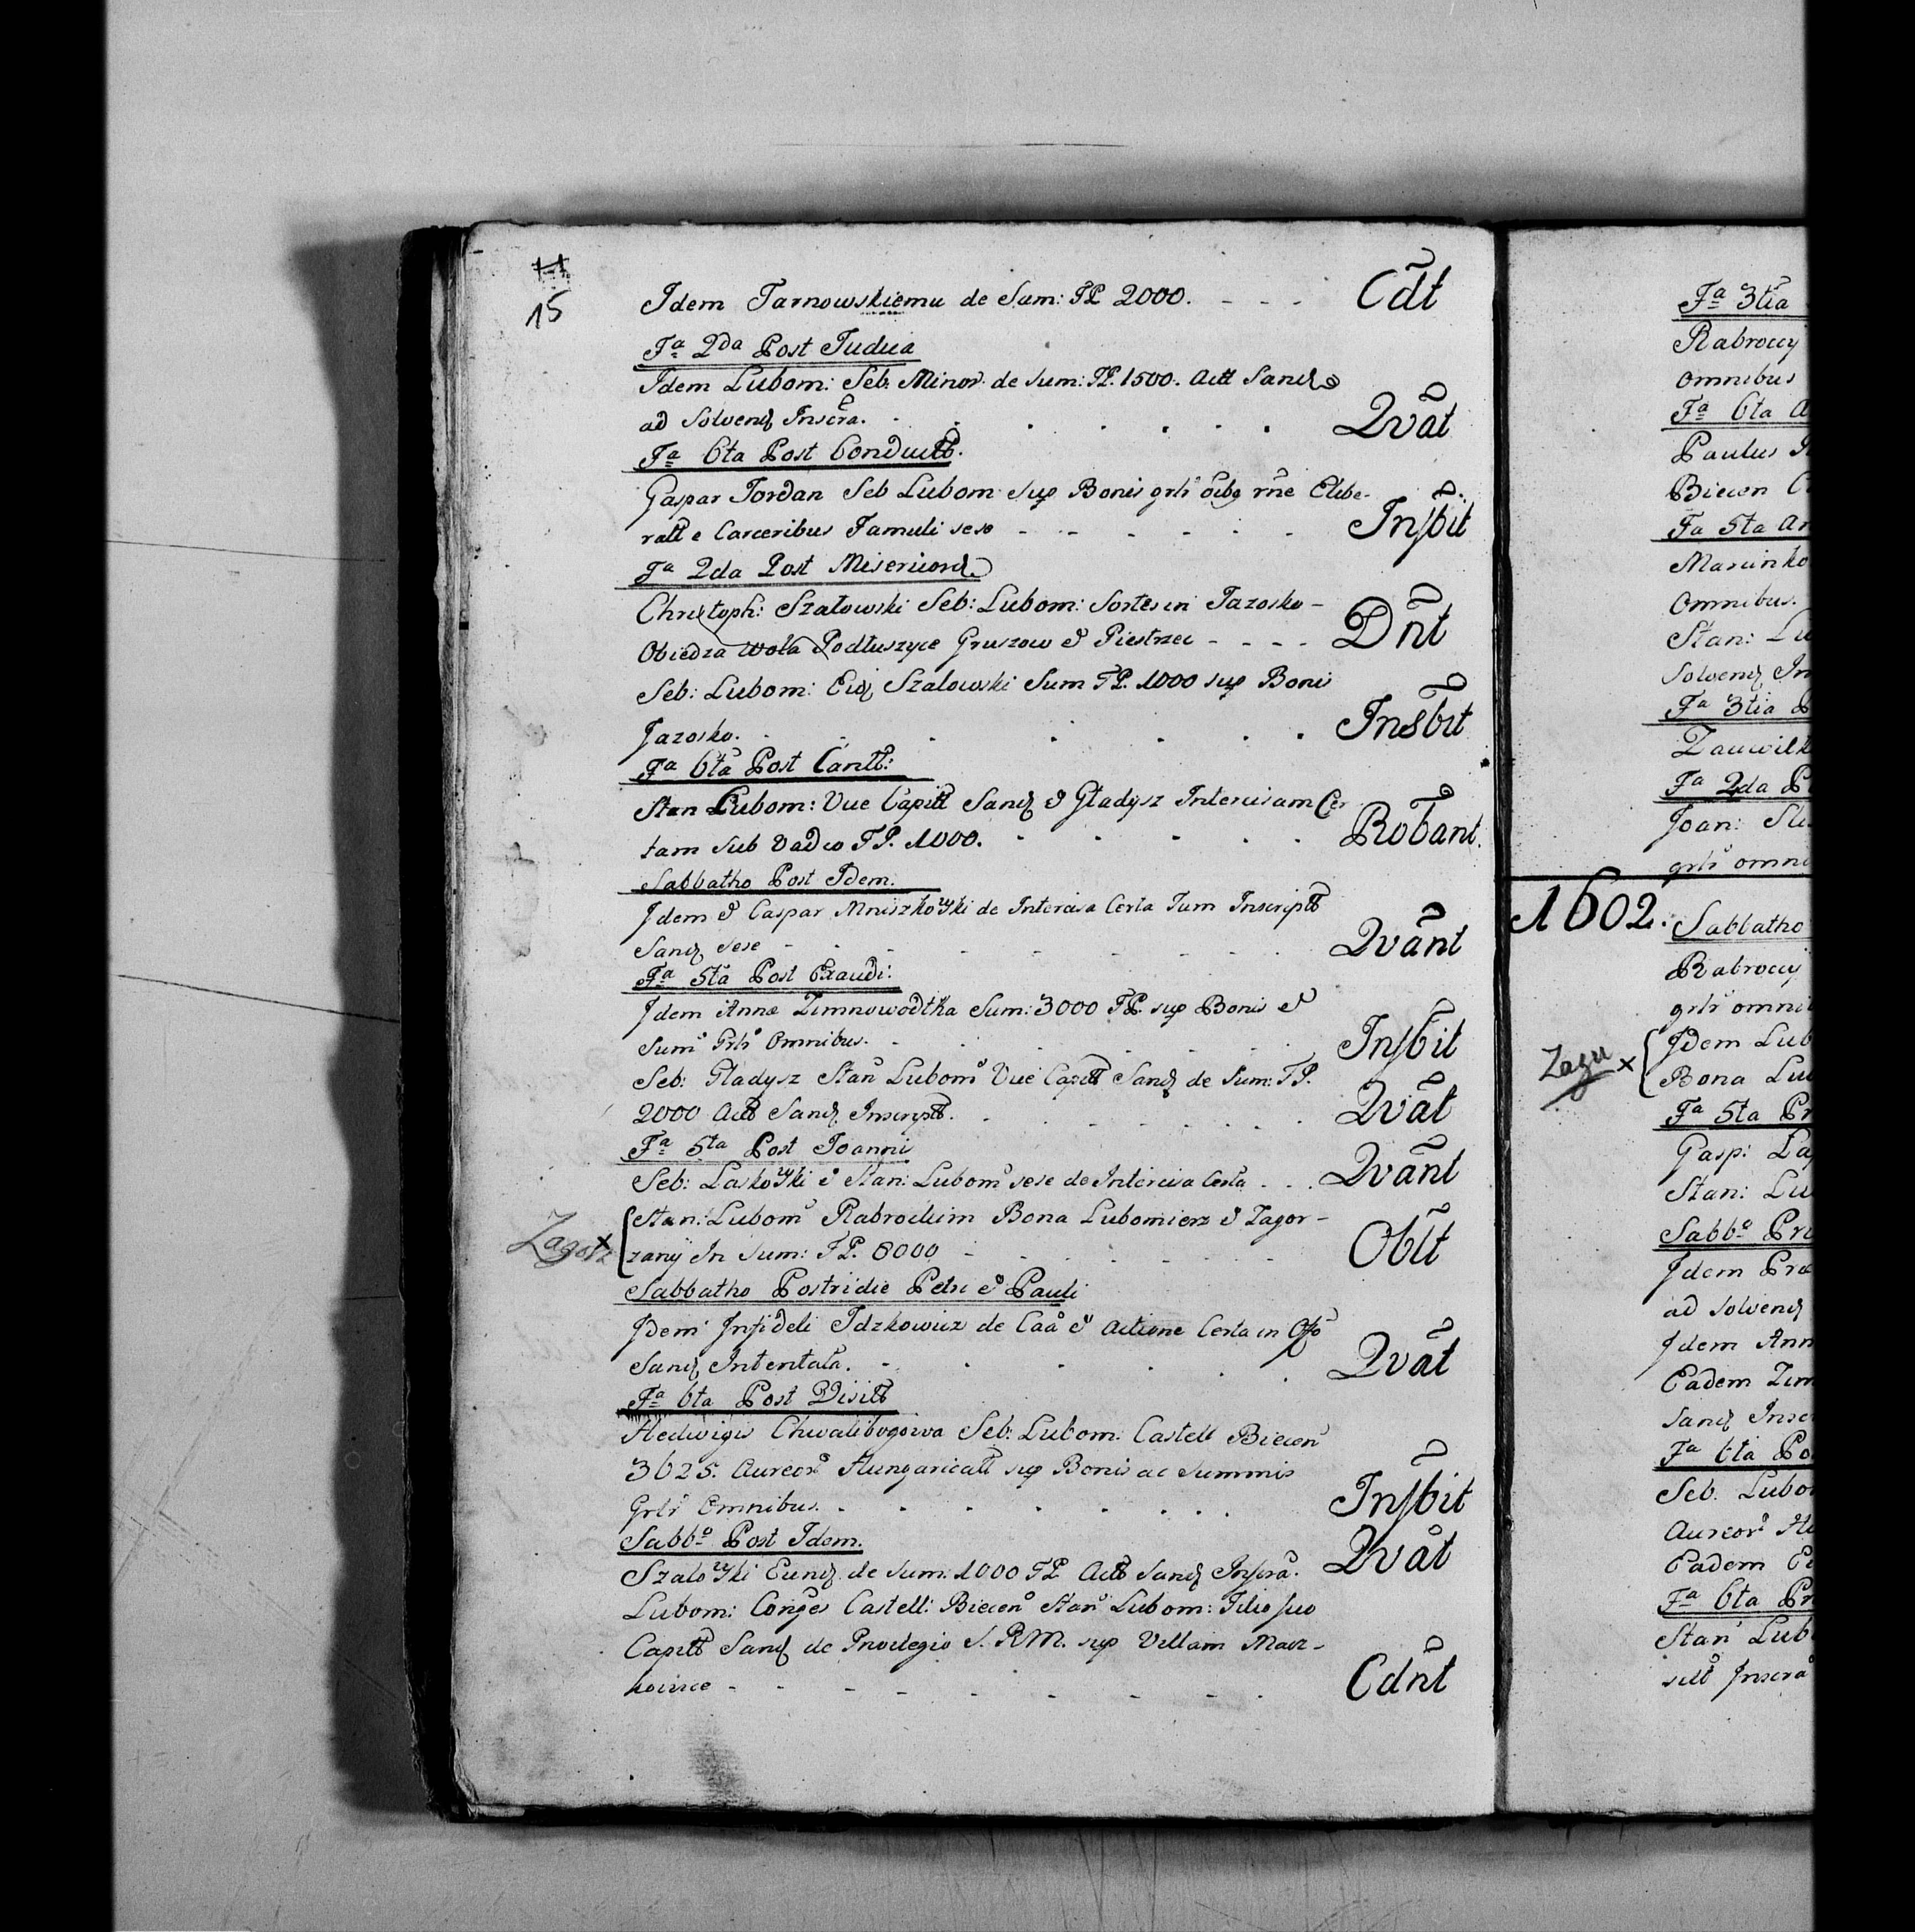 15
Idem Tarnowskiemu de Sum: FP. 2000. - - - Cdt
Fa 2da Post Judica
Idem Lubom: Seb: Minor de Sum: FP. 1500. Actt Sand
ad Solvend Inscra. Qvat
Fa 6ta Post Conductt.
Gaspar Jordan Seb Lubom sup Bonis grlr oibq rne Elibe-
ratt e Carceribus Famuli sese - - - - - - Insbit
Fa 2da Post Misericord.
Christoph: Szalowski Seb: Lubom: Sortes in Jazosko -
Obiedza Wola Podluszyce Gruszow & Piestrzec - - - - Dnt
Seb: Lubom: Eid Szalowski Sum FP. 1000 sup Bonis
Jazosko. Insbit
Fa 6ta Post Cantt:
Stan Lubom: Vice Capitt Sand & Gladysz Intercisam Cer
tam sub Vadio FP. 1000. Robant.
Sabbatho Post Idem.
Idem & Caspar Mniszkowski de Intercisa Certa Tum Inscriptt
Sand sese - - - - - - - Qvant
Fa 5ta Post Exaudi.
Idem Annæ Zimnowodtka Sum: 3000 FP. sup Bonis &
Sum Grlr Omnibus. Insbit
Seb: Gladysz Stan Lubom Vice Capitt Sand de Sum: FP.
2000 Actt Sand. Inscriptt. Qvat
Fa 5ta Post Joannis
Seb: Laskowski & Stan: Lubom sese de Intercisa Certa . . . Qvant
Zagorz x Stan: Lubom Rabrocium Bona Lubomierz & Zagor-
zany In Sum: FP. 8000 - - - - - - Oblt
Sabbatho Postridie Petri & Pauli
Idem Infideli Idzkowicz de Caa & Actione Certa in Offo
Sand Intentata. Qvat
Fa 6ta Post Visitt
Hedwigis Chwalibogowa Seb: Lubom. Castell Biecen
3625. Aureor Hungaricatt sup Bonis ac Summis
Grlr Omnibus. Insbit
Sabbo Post Idem.
Szalowski Eund de Sum: 1000 FP. Actt Sand Inscra. Qvat
Lubom: Conges Castell: Biecen Stan Lubom: Filio suo
Capitt Sand de Privilegio S. RM. sup Villam Marz-
kowice - - - - - - - - Cdnt
Fa 3tia
Rabrocy
Omnibus
Fa 6ta
Paulus
Biecen
Fa 5ta An
Marcinko
Omnibus.
Stan: Lu
Solvend In
Fa 3tia P
Fa 2da P
Joan:
grlr omni
1602. Sabbatho
Rabrocy
grlr omni
Zagu x Idem Lub
Bona Lu
Fa 5ta Pr
Gasp:
Stan: Lu
Sabbo Pr
Idem Præ
ad Solvend
Idem Ann
Eadem Zim
Sand Inscr
Fa 6ta Po
Seb. Lubo
Aureor Hu
Eadem
Fa 6ta Pr
Stan Lub
Inscra